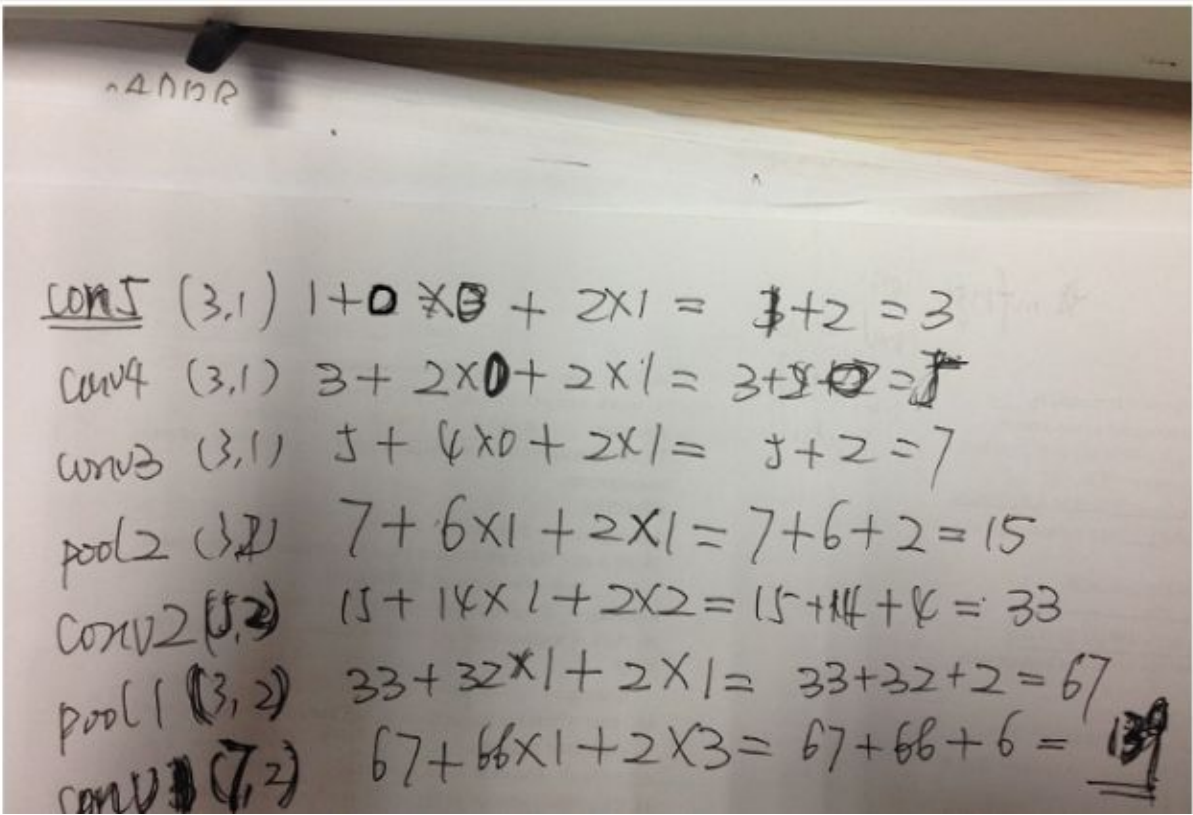 con5 (3,1) 1+0×0 + 2×1 = 1+2 = 3
conv4 (3,1) 3+ 2×0+ 2×1 = 3+2 = 5
conv3 (3,1) 5+ 4×0+ 2×1= 5+2=7
pool2 (3,2) 7+ 6×1 +2×1 = 7+6+2=15
conv2 (5,2) 15+ 14×1+2×2= 15+14+4= 33
pool1 (3,2) 33+32×1+2×1= 33+32+2=67
conv1 (7,2) 67+66×1+2×3= 67+66+6 = 139